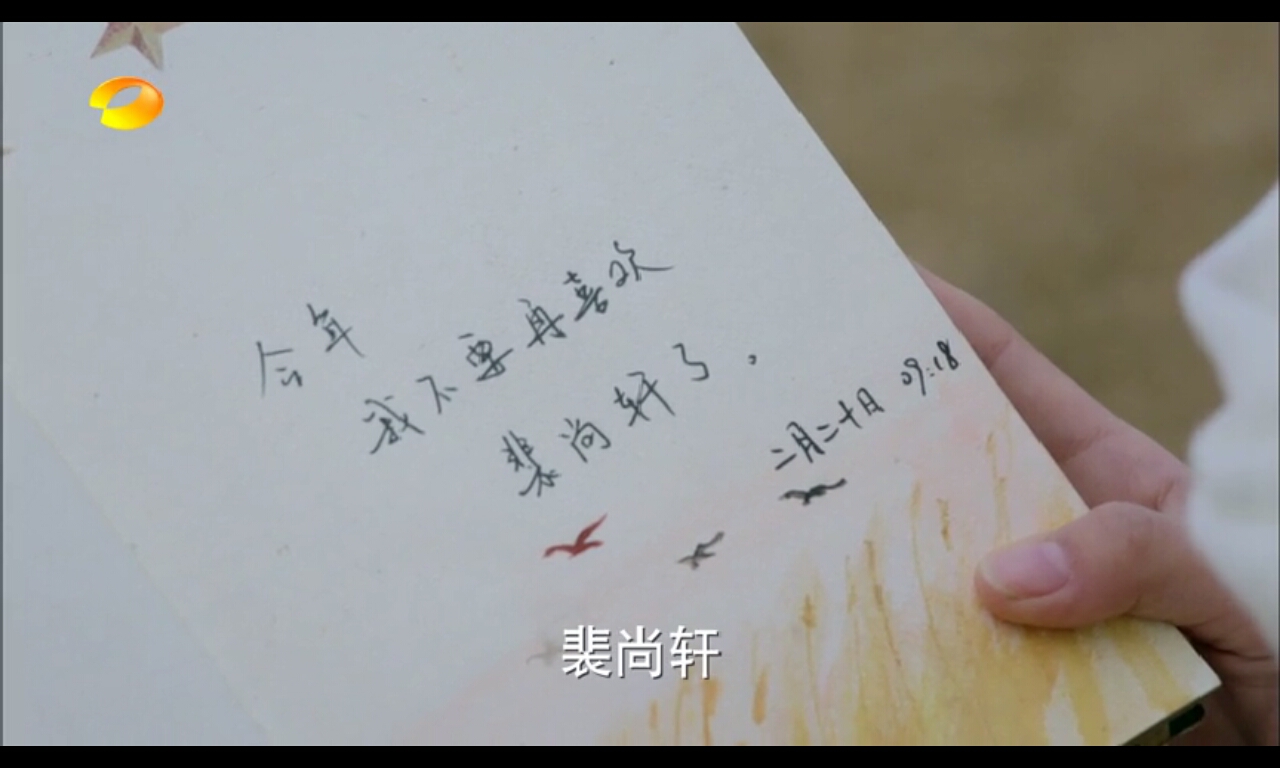 今年
我不要再喜欢
裴尚轩了。
二月二十日 09:18
裴尚轩